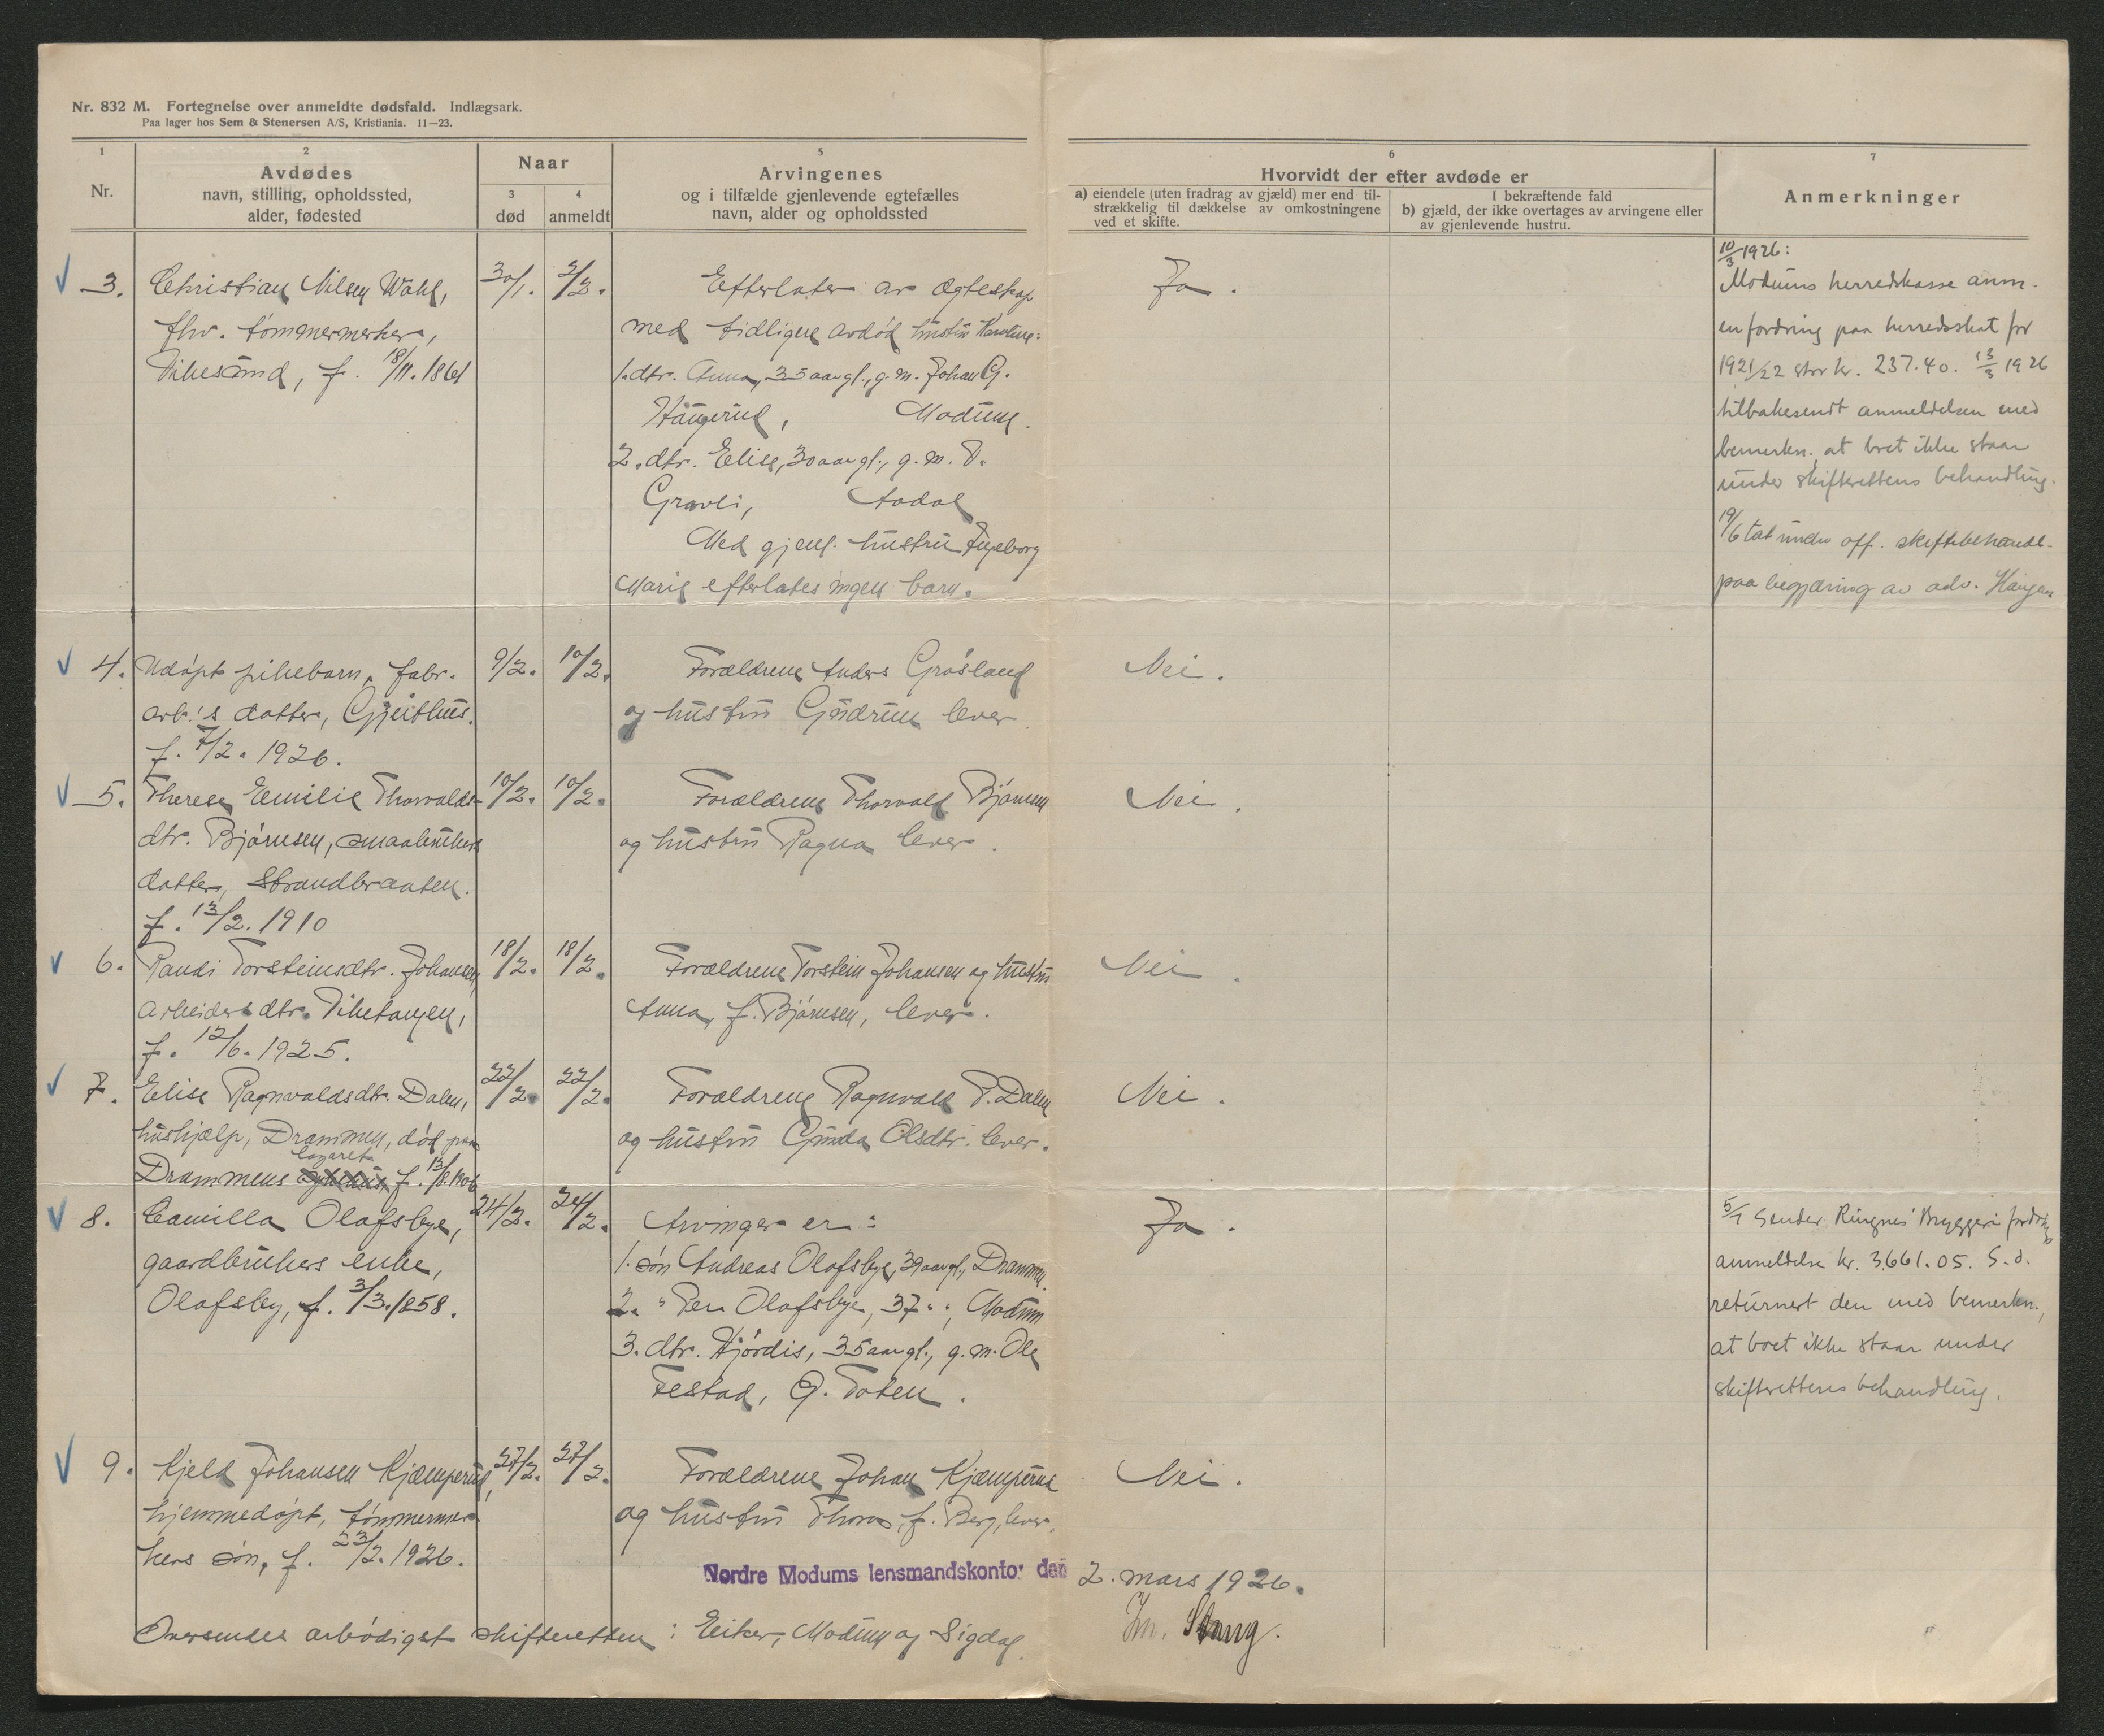 Nr. 832 M. Fortegnelse over anmeldte dødsfald. Indlægsark.
Paa lager hos Sem & Stenersen A/S, Kristiania. 11—23.
1
Nr.
2
Avdødes
navn, stilling, opholdssted,
alder, fødested
Naar
3
død
4
anmeldt
5
Arvingenes
og i tilfælde gjenlevende egtefælles
navn, alder og opholdssted
6
Hvorvidt der efter avdøde er
a) eiendele (uten fradrag av gjæld) mer end til-
strækkelig til dækkelse av omkostningene
ved et skifte.
I bekræftende fald
b) gjæld, der ikke overtages av arvingene eller
av gjenlevende hustru.
7
Anmerkninger
3.
Christian Nilsen
fhv. tømmermerker,
Vikesund, f. 18/11. 1861
30/1.
2/2.
Efterlater av ægteskap
med tidligere avdød hustru Karoline:
1. dtr. Anna, 35 aar gl., g. m. Johan G.
Haugerud, Modum.
2. dtr. Elise, 30 aar gl., g. m. T.
Gravli, Aadal
Med gjenl. hustru Ingeborg
Marie efterlates ingen barn.
Ja.
10/3 1926:
Modums herredskasse anm.
en fordring paa herredsskat for
1921/22 stor kr. 237.40. 13/3 1926
tilbakesendt anmeldelsen med
bemerkn. at boet ikke staar
under skifterettens behandling.
19/6 tat under off. skiftebehandl.
paa begjæring av adv. Haugen
4.
Udøpt pikebarn, fabr.
arb.'s datter, Gjeithus.
f. 7/2. 1926.
9/2.
10/2.
Forældrene Anders Gråsland
og hustru Gudrun lever.
Nei.
5.
Therese Emilie Thorvalds-
dtr. Bjørnsen, smaabrukers
datter, Strandbraaten.
f. 13/2. 1910
10/2.
10/2.
Forældrene Thorvald Bjørnsen
og hustru Ragna lever.
Nei.
6.
Randi Torsteinsdtr. Johansen,
arbeiders dtr. Viketangen,
f. 12/6. 1925.
18/2.
18/2.
Forældrene Torstein Johansen og hustru
Anna, f. Bjørnsen, lever.
Nei.
7.
Elise Ragnvaldsdtr. Dalen,
hushjælp, Drammen, død paa
lazaret
Drammens f. 13/8.
22/2.
22/2.
Forældrene Ragnvald P. Dalen
og hustru Gunda Olsdtr. lever.
Nei.
8.
Camilla Olafsbye,
gaardbrukers enke,
Olafsby, f. 3/3. 1858.
24/2.
24/2.
Arvinger er:
1. søn Andreas Olafsbye, 39 aar gl., Drammen.
2. " Per Olafsbye, 37 " ", Modum
3. dtr. Hjørdis, 35 aar gl., g. m. Ole
Festad, Ø. Toten.
Ja.
5/7 sender Ringnes Bryggeri fordrings
anmeldelse kr. 3661.05. S. d.
returnert den med bemerkn.,
at boet ikke staar under
skifterettens behandling.
9.
Kjeld Johansen Kjæmperud,
hjemmedøpt, tømmermer-
kers søn, f. 23/2. 1926.
27/2.
27/2.
Forældrene Johan Kjæmperud
og hustru Thora, f. Berg, lever.
Nei.
Nordre Modums lensmandskontor den 2. mars 1926.
Oversendes ærbødigst skifteretten i Eiker, Modum og Sigdal.